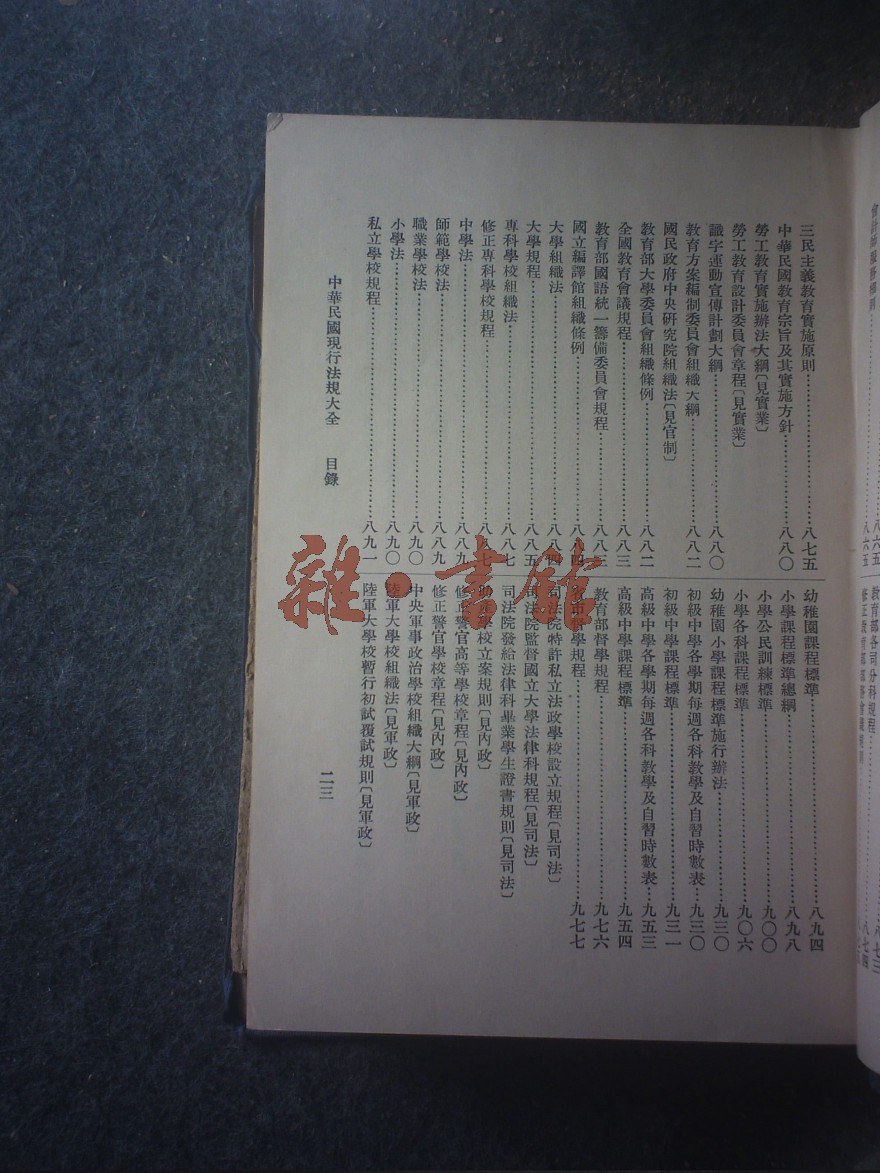 會計師服務細則……八六五
八六五
教育部各司分科規程……八七三
八七四
三民主義教育實施原則……八七五
中華民國教育宗旨及其實施方針……八八〇
勞工教育實施辦法大綱〔見實業〕
勞工教育設計委員會章程〔見實業〕
識字運動宣傳計劃大綱……八八〇
教育方案編制委員會組織大綱……八八二
國民政府中央硏究院組織法〔見官制〕
教育部大學委員會組織條例……八八二
全國教育會議規程……八八三
教育部國語統一籌備委員會規程……八八三
國立編譯館組織條例……八八四
大學組織法……八八四
大學規程……八八五
專科學校組織法……八八七
修正專科學校規程……八八七
中學法……八八九
師範學校法……八八九
職業學校法……八九〇
小學法……八九〇
私立學校規程……八九一
幼稚園課程標準……八九四
小學課程標準總綱……八九八
小學公民訓練標準……九〇〇
小學各科課程標準……九〇六
幼稚園小學課程標準施行辦法……九三〇
初級中學各學期每週各科教學及自習時數表……九三〇
初級中學課程標準……九三一
高級中學各學期每週各科教學及自習時數表……九五三
高級中學課程標準……九五四
教育部督學規程……九七六
省市督學規程……九七七
司法院特許私立法政學校設立規程〔見司法〕
司法院監督國立大學法律科規程〔見司法〕
司法院發給法律科畢業學生證書規則〔見司法〕
助產學校立案規則〔見內政〕
修正警官高等學校章程〔見內政〕
修正警官學校章程〔見內政〕
中央軍事政治學校組織大綱〔見軍政〕
陸軍大學校組織法〔見軍政〕
陸軍大學校暫行初試覆試規則〔見軍政〕
中華民國現行法規大全 目錄
二三
雜·書館